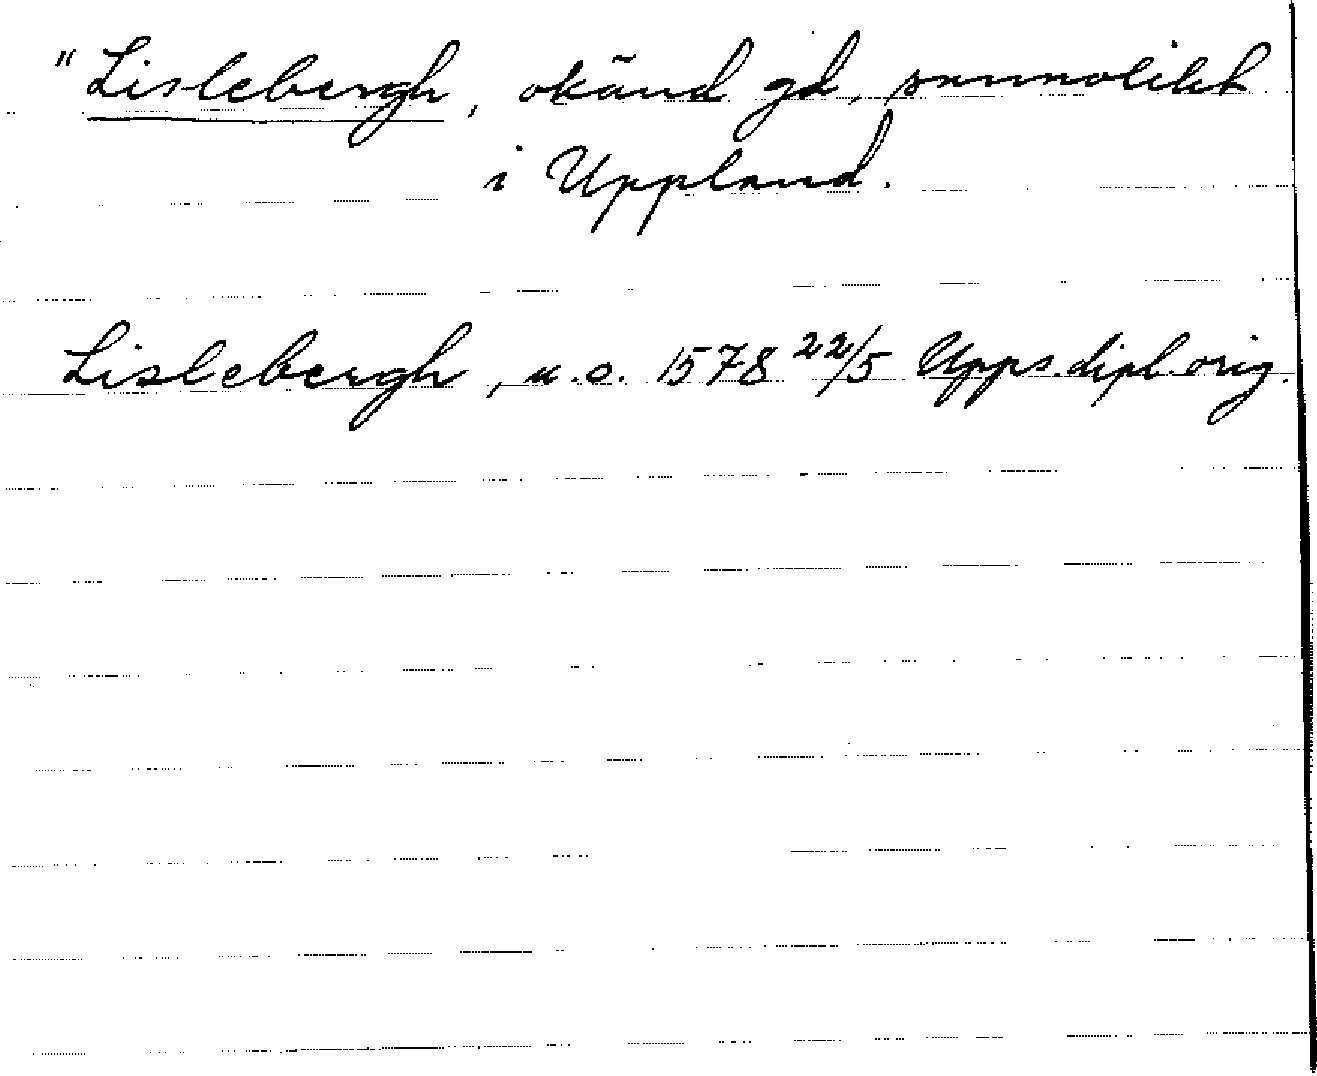 "Lislebergh, okänd gd, sannolikt
i Uppland.
Lislebergh, u.o. 1578 22/5 Upps.dipl.orig.